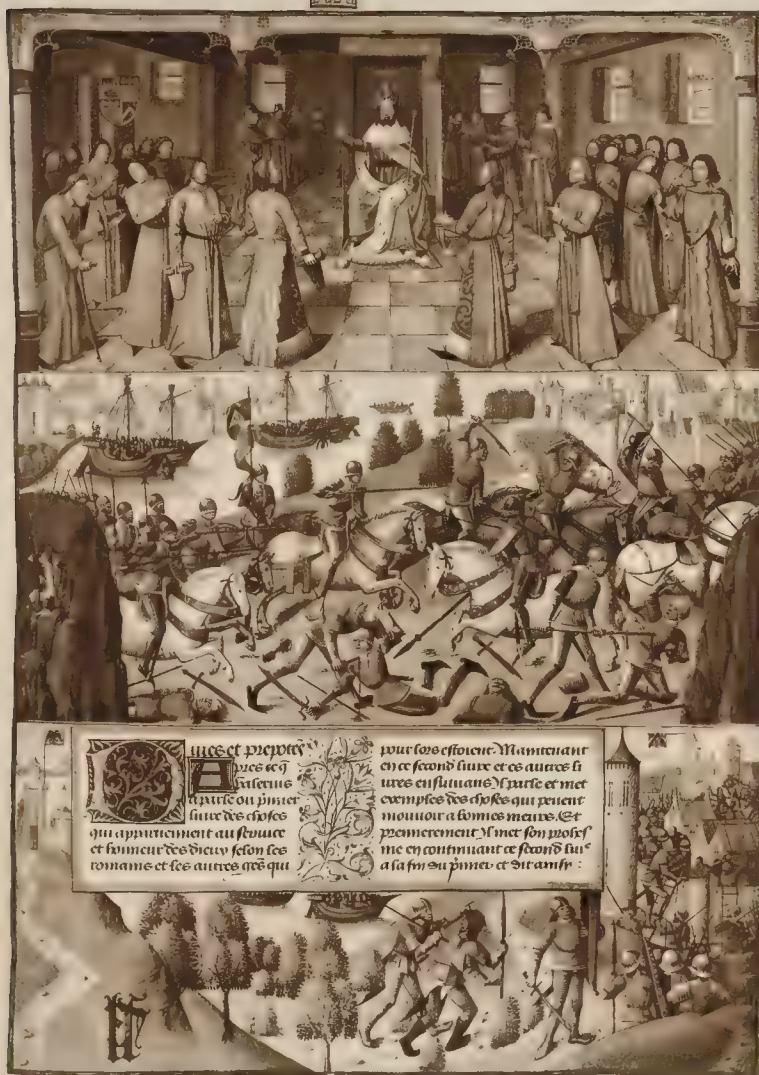 Diues et prepotēs
Apres ce q̄
Valerius
a parle ou p̄mier
liure des choses
qui appartiennent au seruice
et honneur des dieux selon les
romains et les autres gēs qui
pour lors estoient. Maintenant
en ce second liure et es autres li
ures ensuiuans Il parle et met
exemples des choses qui peuent
mouuoir a bonnes meurs. Et
premierement Il met son prohes
me en continuant ce second liur̄
a la fin du p̄mier et dit ainsi :